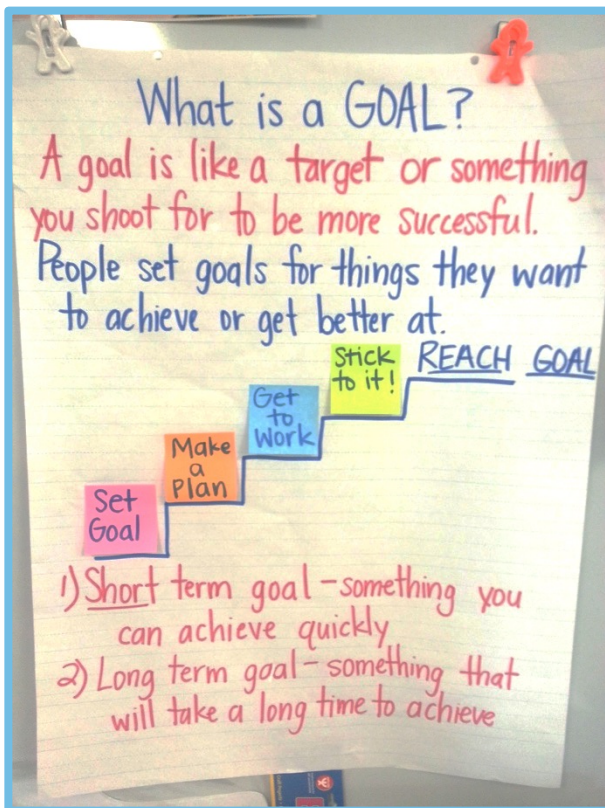 What is a GOAL?
A goal is like a target or something
you shoot for to be more successful.
People set goals for things they want
to achieve or get better at.
Set
Goal
Make
a
Plan
Get
to
Work
Stick
to it!
REACH GOAL
1) Short term goal - something you
can achieve quickly
2) Long term goal - something that
will take a long time to achieve